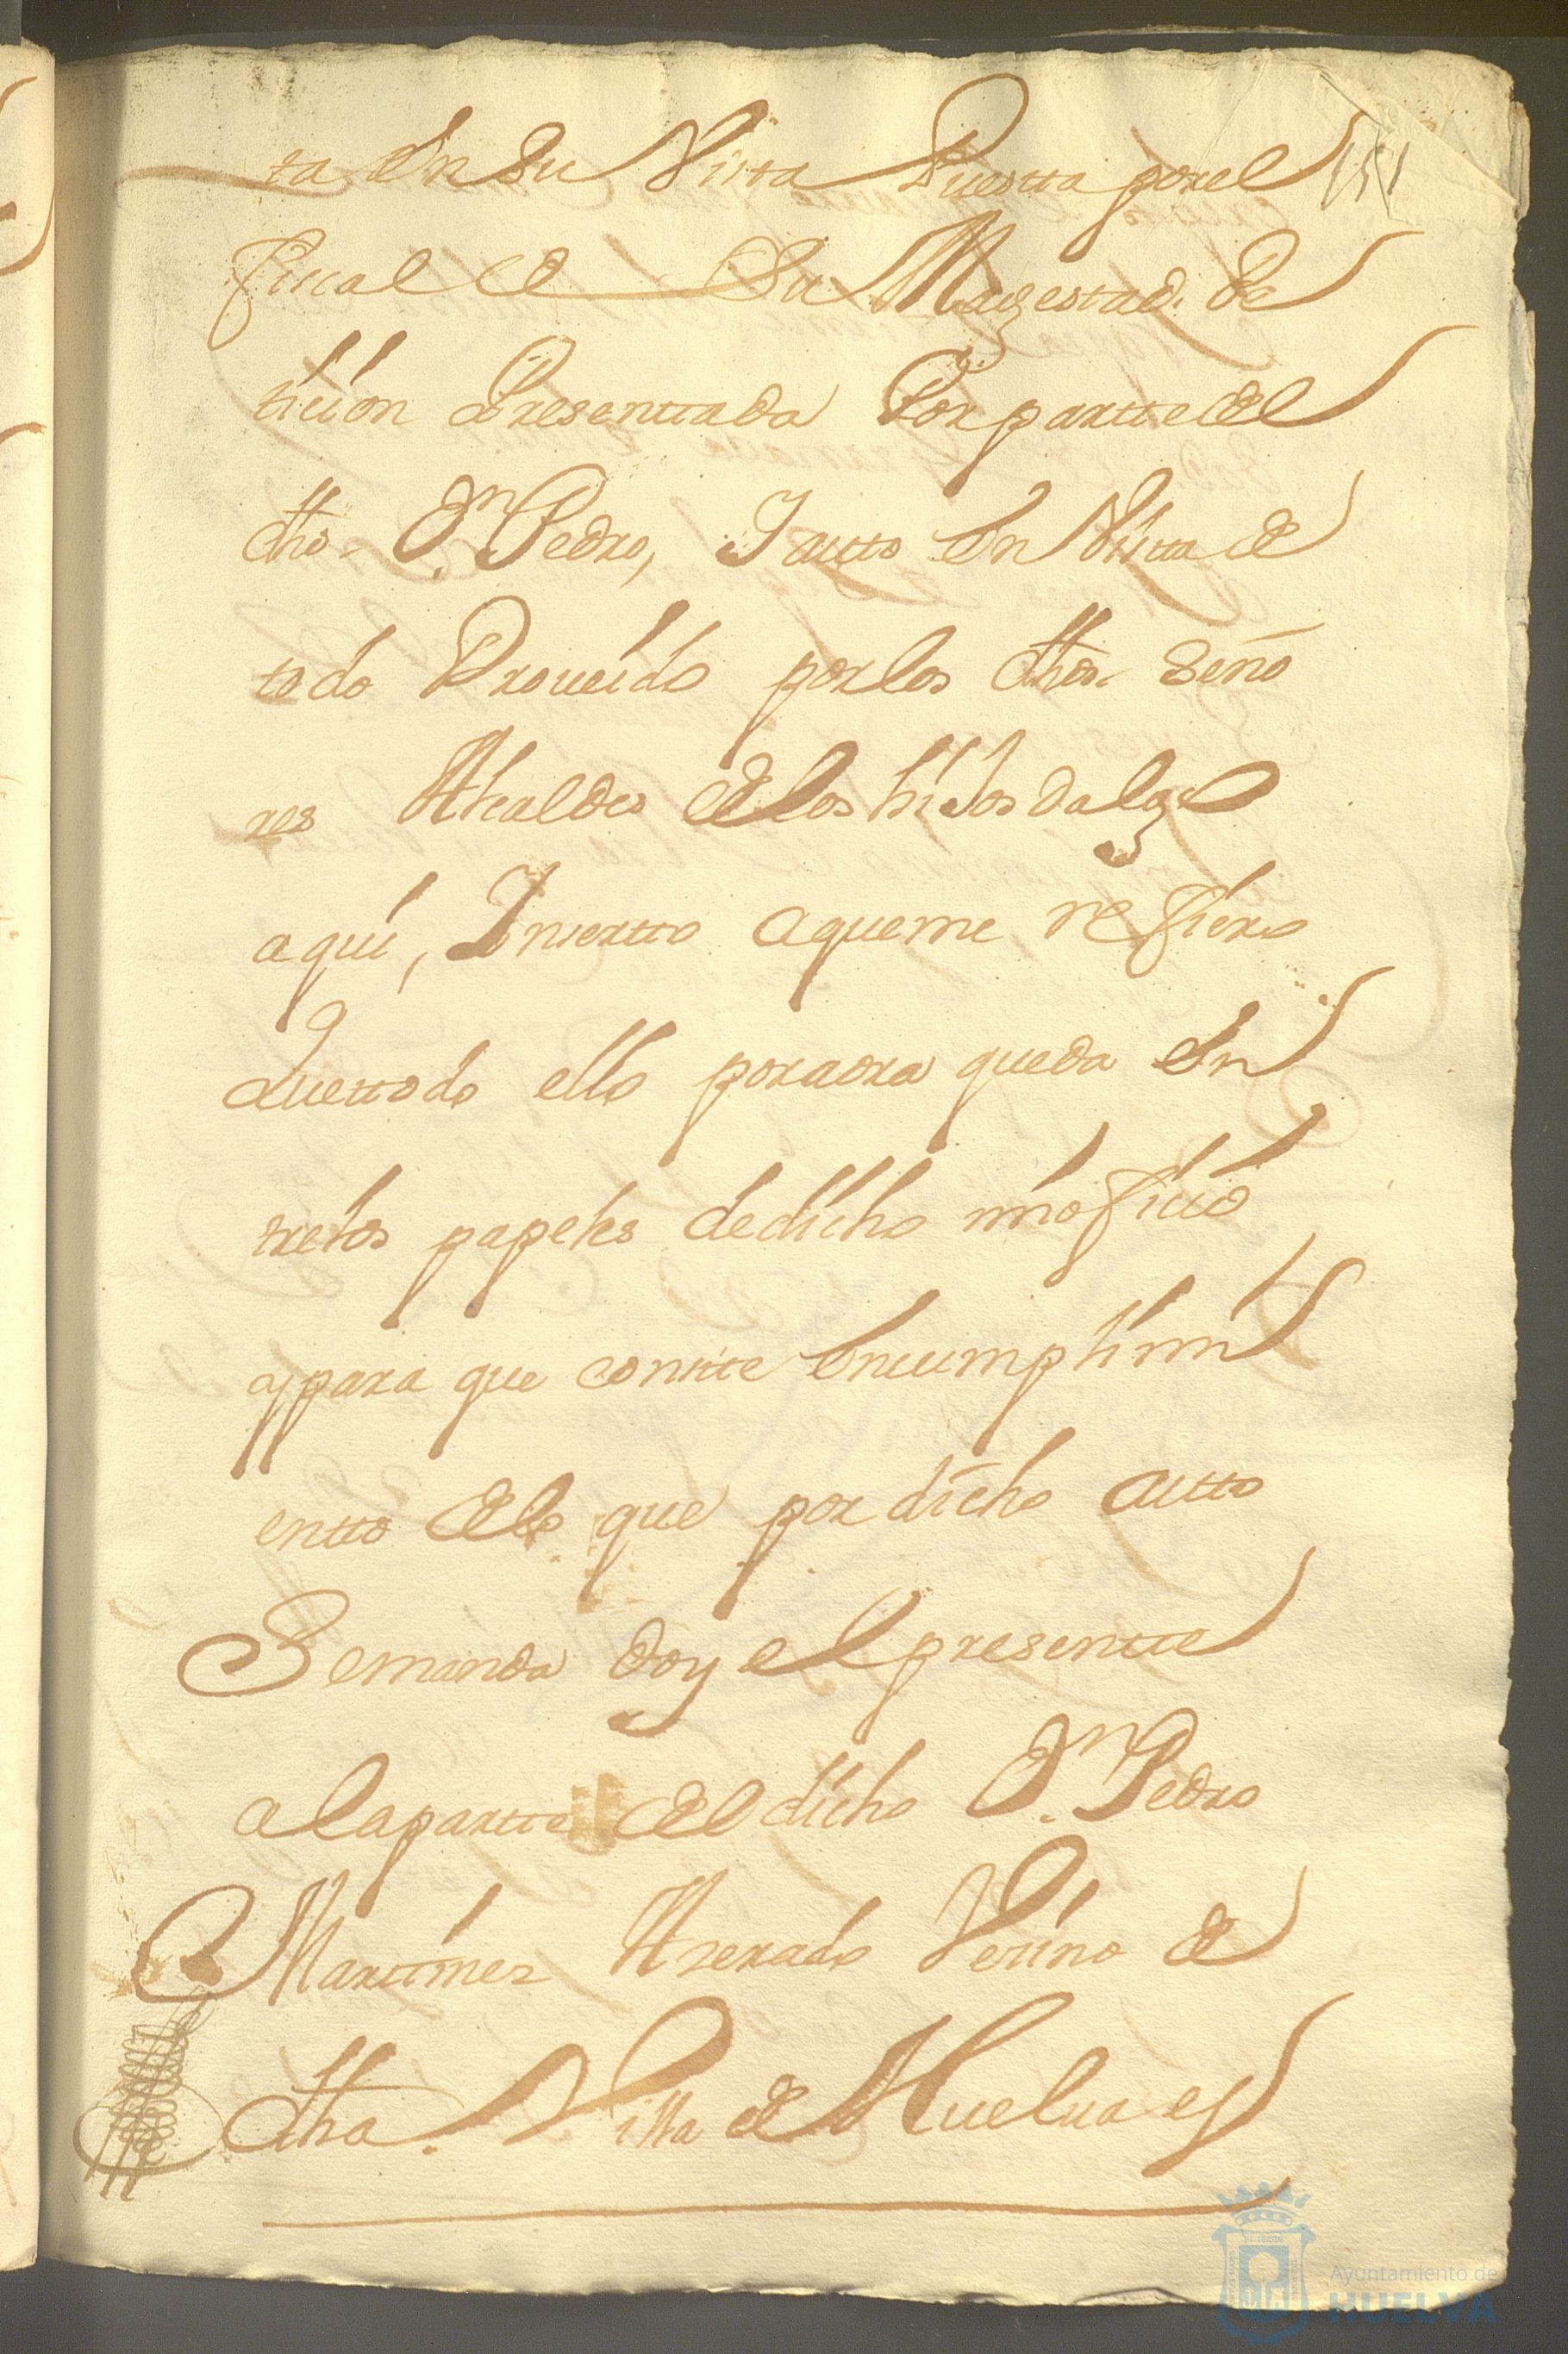 ta en su Vista Puesta por el 151
fiscal de Su Magestad. Pe
ticion Presenttada Por partte del
dho. Dn. Pedro, I autto en Vista de
todo Proueido por los dhos. Seño
res Alcaldes de los hiJos dalgo
aqui, Inserto aqueme refiero
Quettodo ello poraora queda en
trelos papeles de dicho mi oficio
y para que conste en cumplimi
entto de lo que por dicho autto
Semanda doy el presentte
ala partte del dicho Dn. Pedro
Marttinez Azerado Vezino de
dha. Villa de Huelua es
Ayuntamiento de
HUELVA